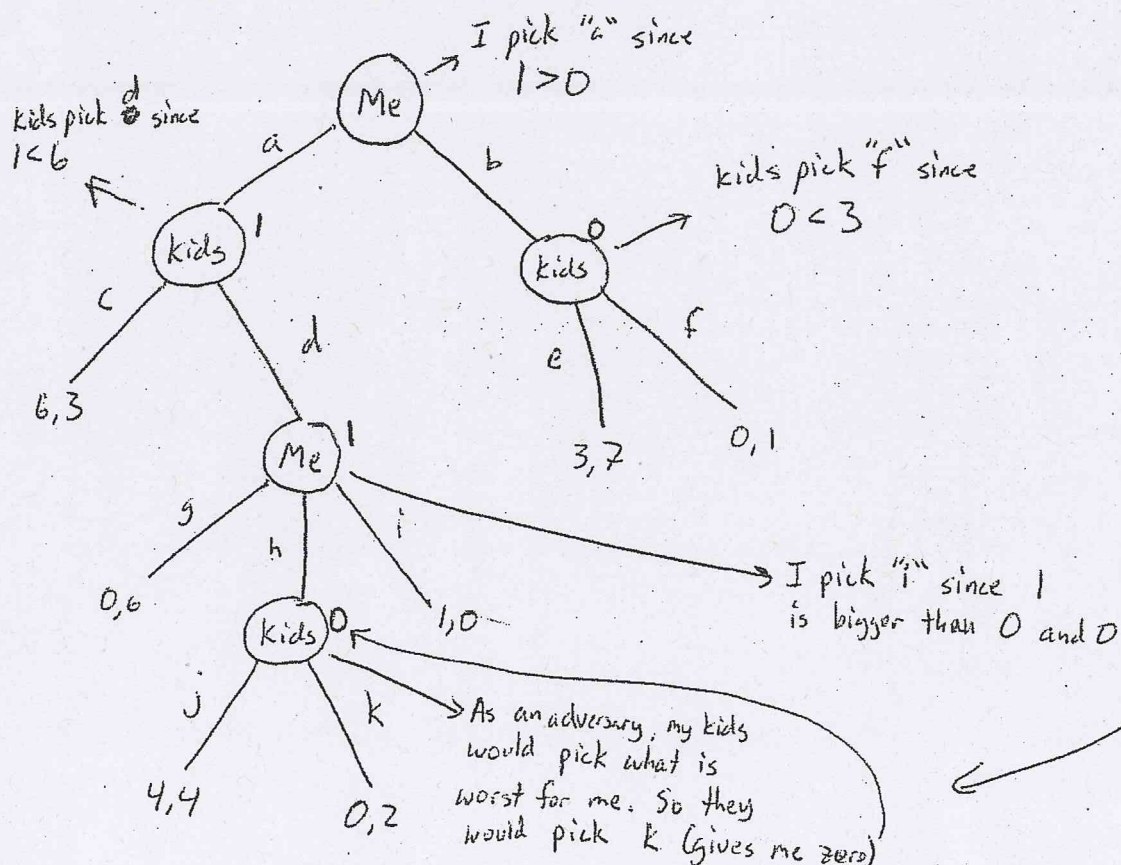 I pick "a" since
1 > 0
Me
kids pick d since
1 < 6
a
b
kids pick "f" since
0 < 3
kids
1
kids
0
c
d
e
f
6,3
3,7
0,1
Me
1
g
h
i
0,6
1,0
I pick "i" since 1
is bigger than 0 and 0
kids
0
j
k
As an adversary, my kids
would pick what is
worst for me. So they
would pick k (gives me zero)
4,4
0,2